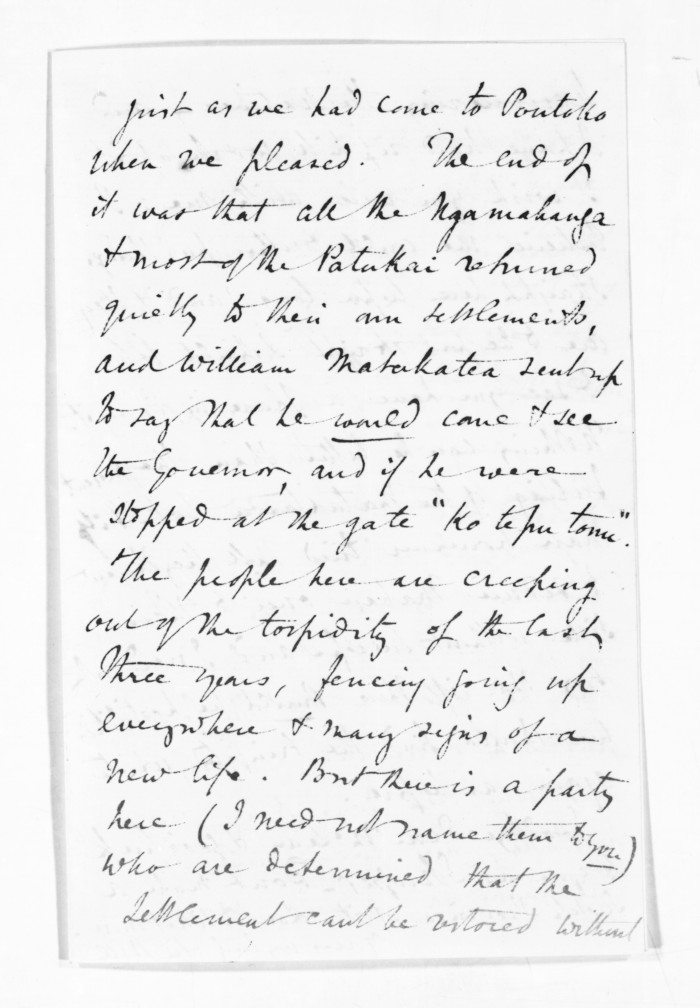 just as we had come to Poutoko
when we pleased. The end of
it was that all the Ngamahanga
& most of the Patukai returned
quietly to their own settlements,
and William Matakatea sent up
to say that he would come & see
the Governor, and if he were
stopped at the gate "Ko te pu tonu".
The people here are creeping
out of the torpidity of the last
three years, fencing going up
everywhere & many signs of a
new life. But there is a party
here (I need not name them to you)
who are determined that the
settlement cant be restored without